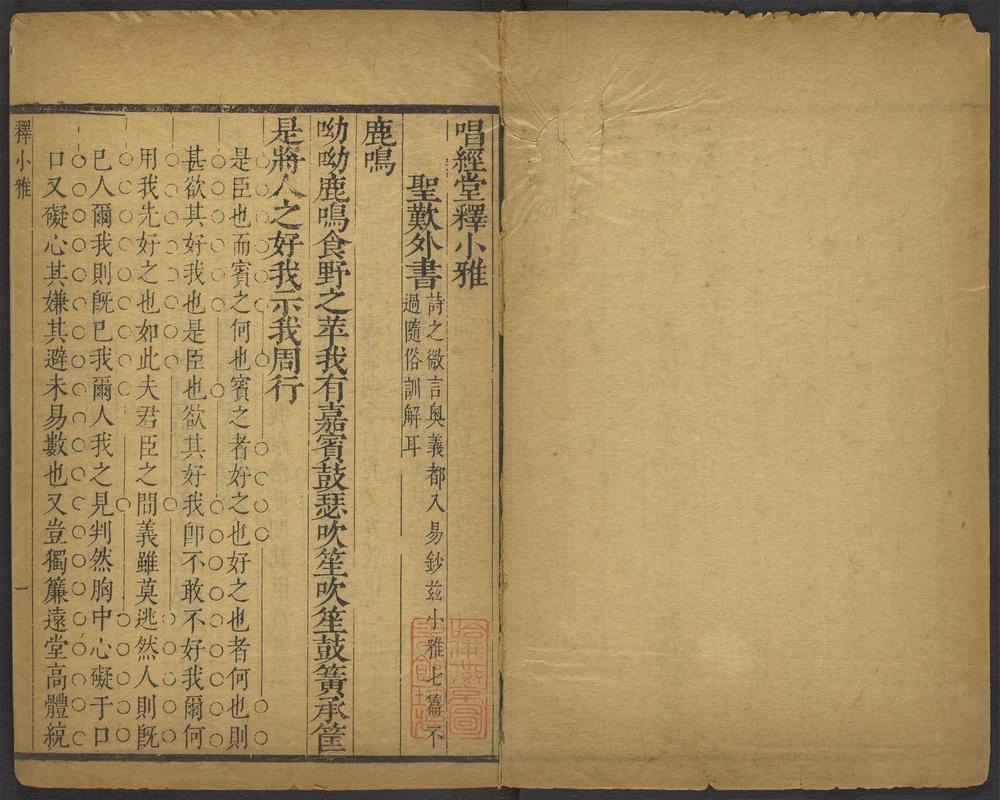 唱經堂釋小雅
聖歎外書
詩之微言奧義都入易鈔兹小雅七篇不
過隨俗訓解耳
鹿鳴
呦呦鹿鳴食野之苹我有嘉賓鼓瑟吹笙吹笙鼓簧承筐
是將人之好我示我周行
是臣也而賓之何也賓之者好之也好之也者何也則
甚欲其好我也是臣也欲其好我卽不敢不好我爾何
用我先好之也如此夫君臣之間義雖莫逃然人則旣
已人爾我則旣已我爾人我之見判然胸中心礙于口
口又礙心其嫌其避未易數也又豈獨簾遠堂高體統
釋小雅
一